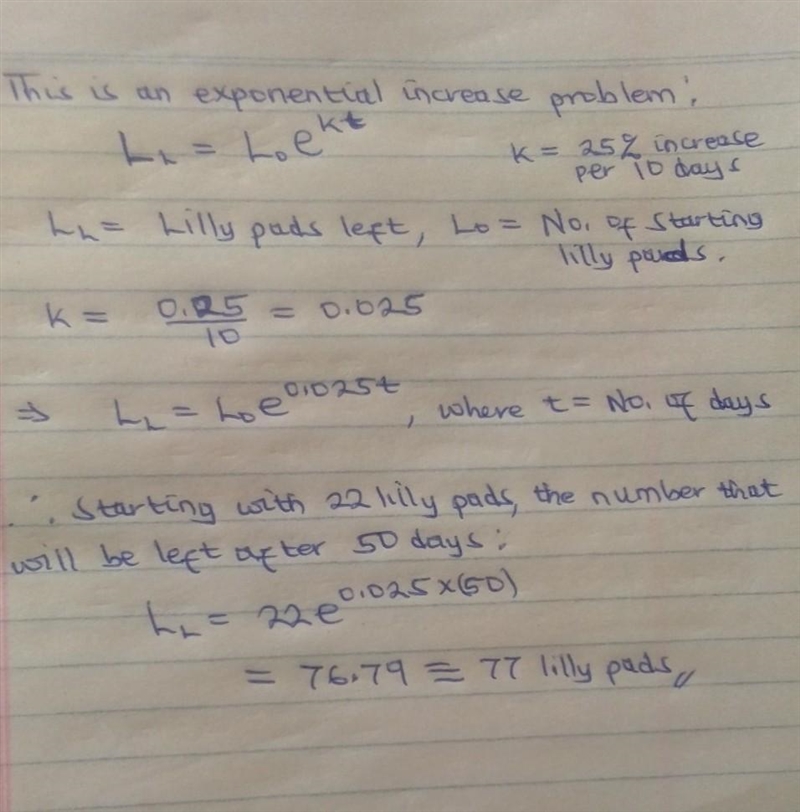 This is an exponential increase problem:
L_L = L_0 e^{kt}
K = 25% increase
per 10 days
L_L = Lilly pads left, L_0 = No. of starting
lilly pads.
K = 0.25/10 = 0.025
⇒ L_L = L_0 e^{0.025t}, where t = No. of days
∴ Starting with 22 lilly pads, the number that
will be left after 50 days:
L_L = 22e^{0.025×(50)}
= 76.79 ≡ 77 lilly pads //